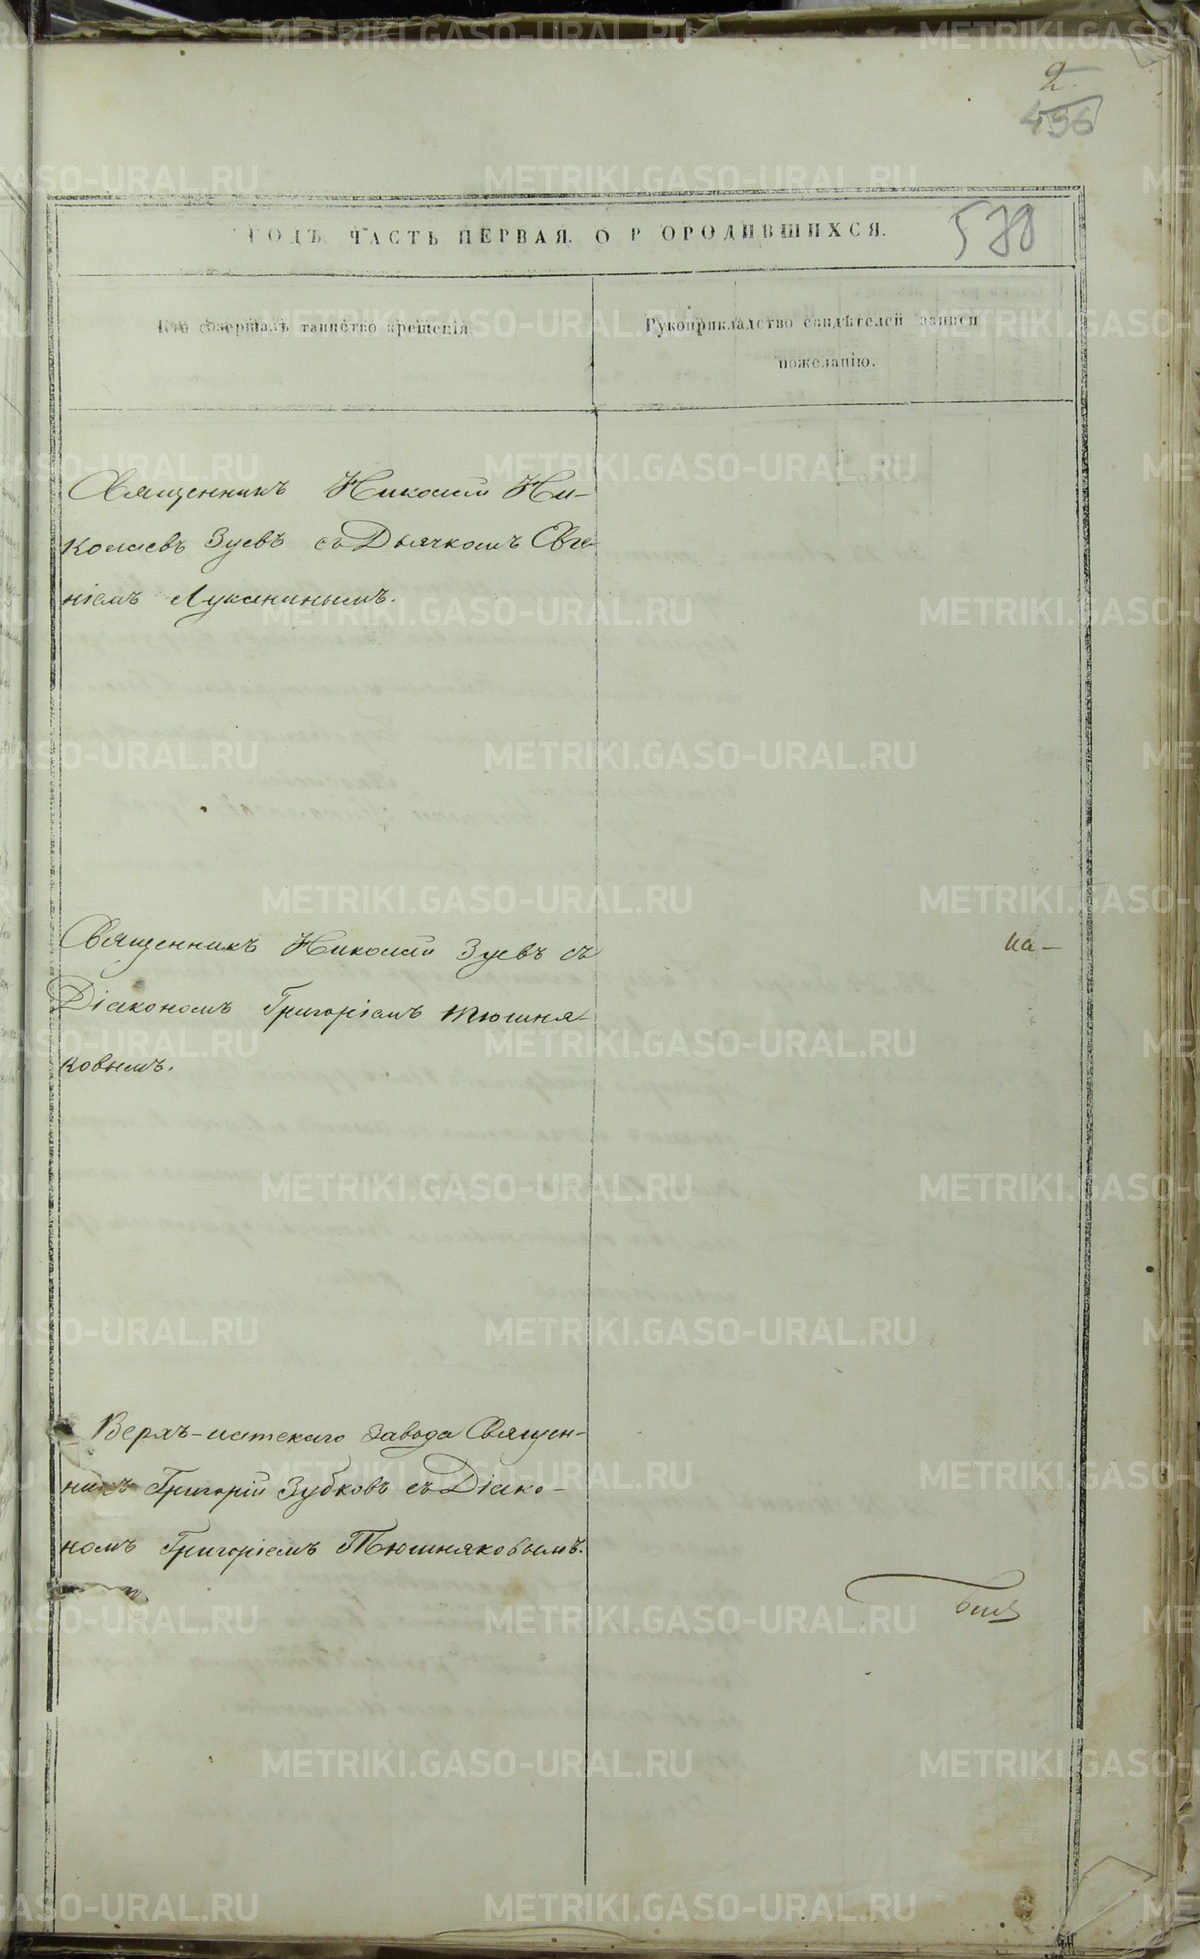 2.
496
580
ГОДЪ. ЧАСТЬ ПЕРВАЯ. О РОДИВШИХСЯ.
Кто совершалъ таинство крещенія.
Рукоприкладство свидѣтелей записи
пожеланію.
Священникъ Николай Ни-
колаевъ Зуевъ съ Дьячкомъ Евге-
ніемъ Лукaнинымъ.
Священникъ Николай Зуевъ съ
Діакономъ Григоріемъ Тюшня-
ковымъ.
на-
Верхъ-исетскаго завода Священ-
никъ Григорій Зубковъ съ Діако-
номъ Григоріемъ Тюшняковымъ.
METRIKI.GASO-URAL.RU